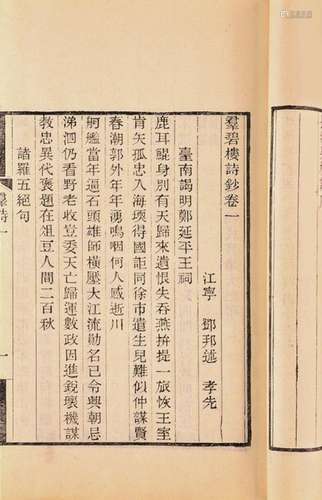 羣碧樓詩鈔卷一
江寧 鄧邦述 孝先
臺南謁明鄭延平王祠
鹿耳鯤身別有天歸來遺恨失吞燕拚提一旅恢王室
肯矢孤忠入海壖得國詎同徐市遣生兒難似仲謀賢
春潮郭外年年湧嗚咽何人感逝川
舸艦當年逼石頭雄師橫壓大江流勛名已令興朝忌
涕泗仍看野老收豈委天亡歸運數政因進銳壞機謀
教忠異代褒題在俎豆人間二百秋
諸羅五絕句
羣詩一
一